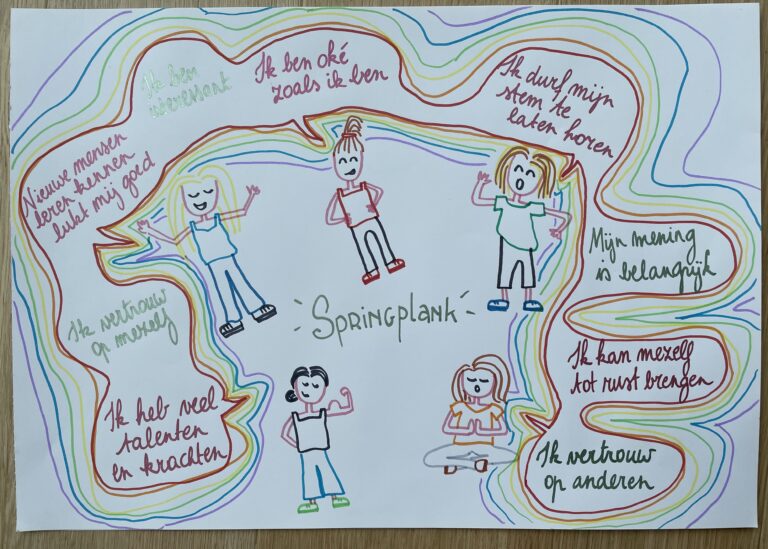 Ik ben
interessant
Ik ben oké
zoals ik ben
Ik durf mijn
stem te
laten horen
Nieuwe mensen
leren kennen
lukt mij goed
Mijn mening
is belangrijk
Ik vertrouw
op mezelf
Springplank
Ik kan mezelf
tot rust brengen
Ik heb veel
talenten
en krachten
Ik vertrouw
op anderen